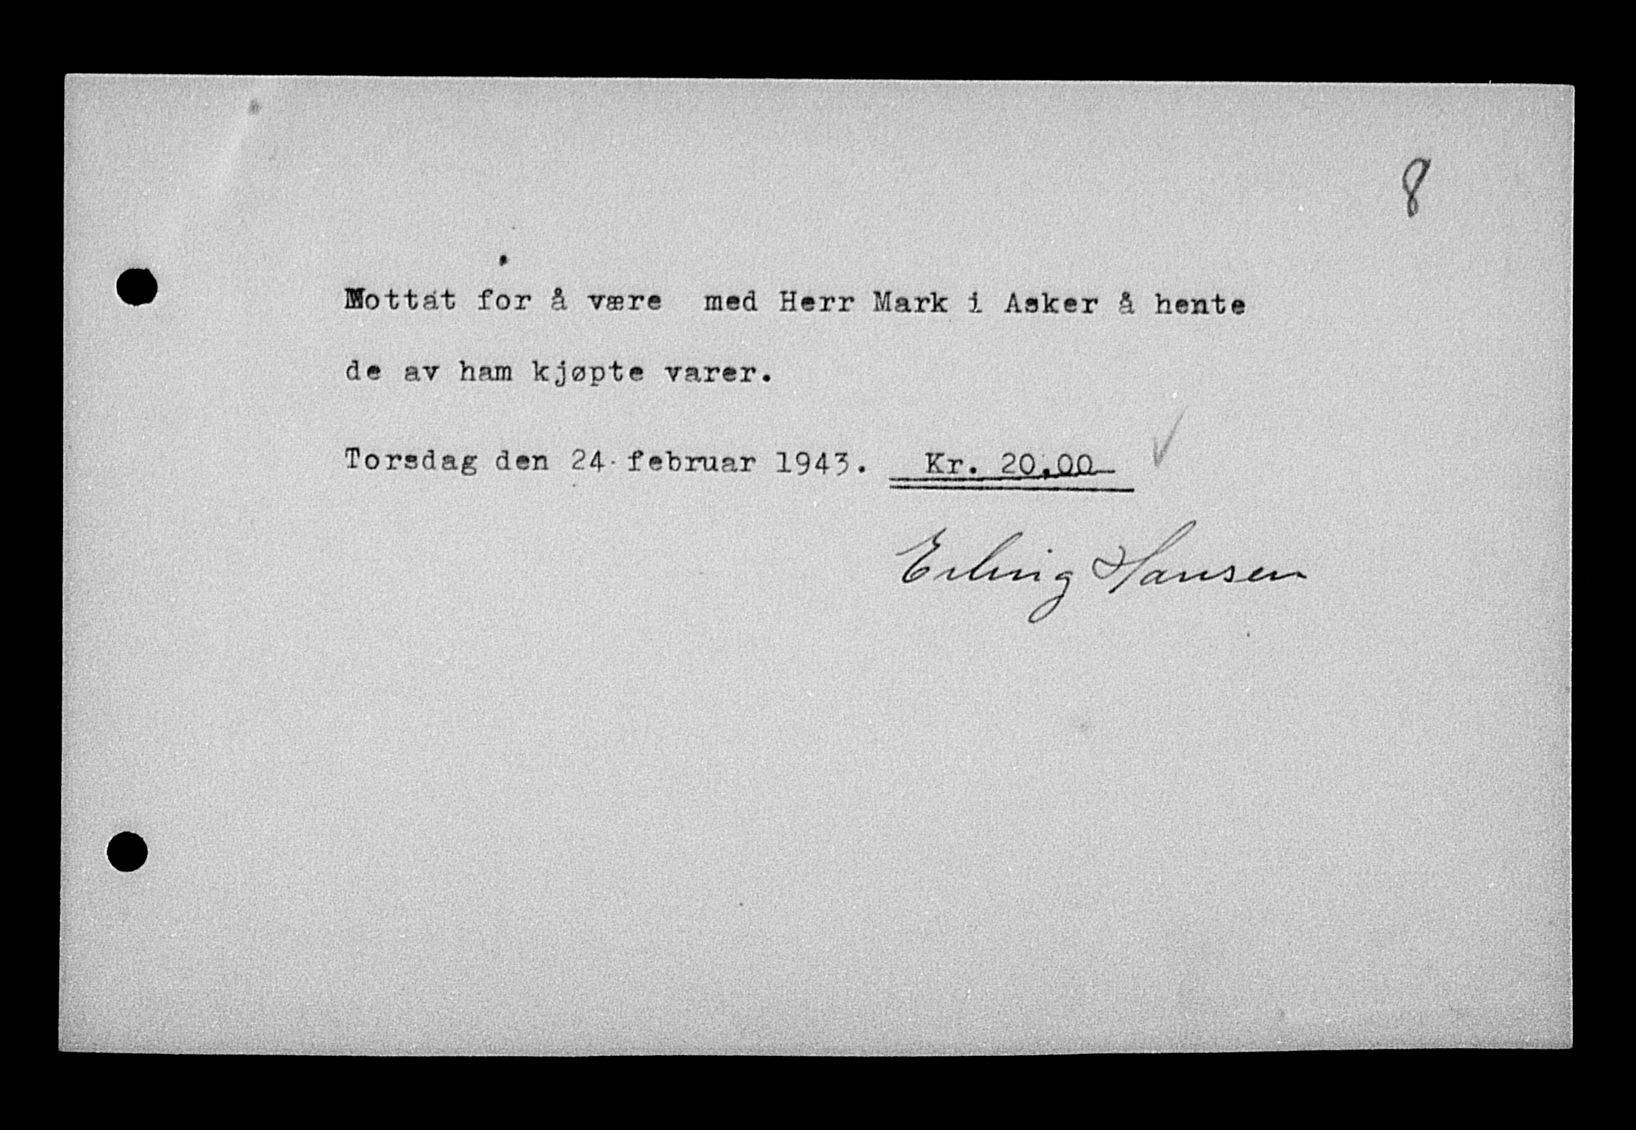 8
Mottat for å være med Herr Mark i Asker å hente
de av ham kjøpte varer.
Torsdag den 24. februar 1943. Kr. 20,00
Erling Hansen